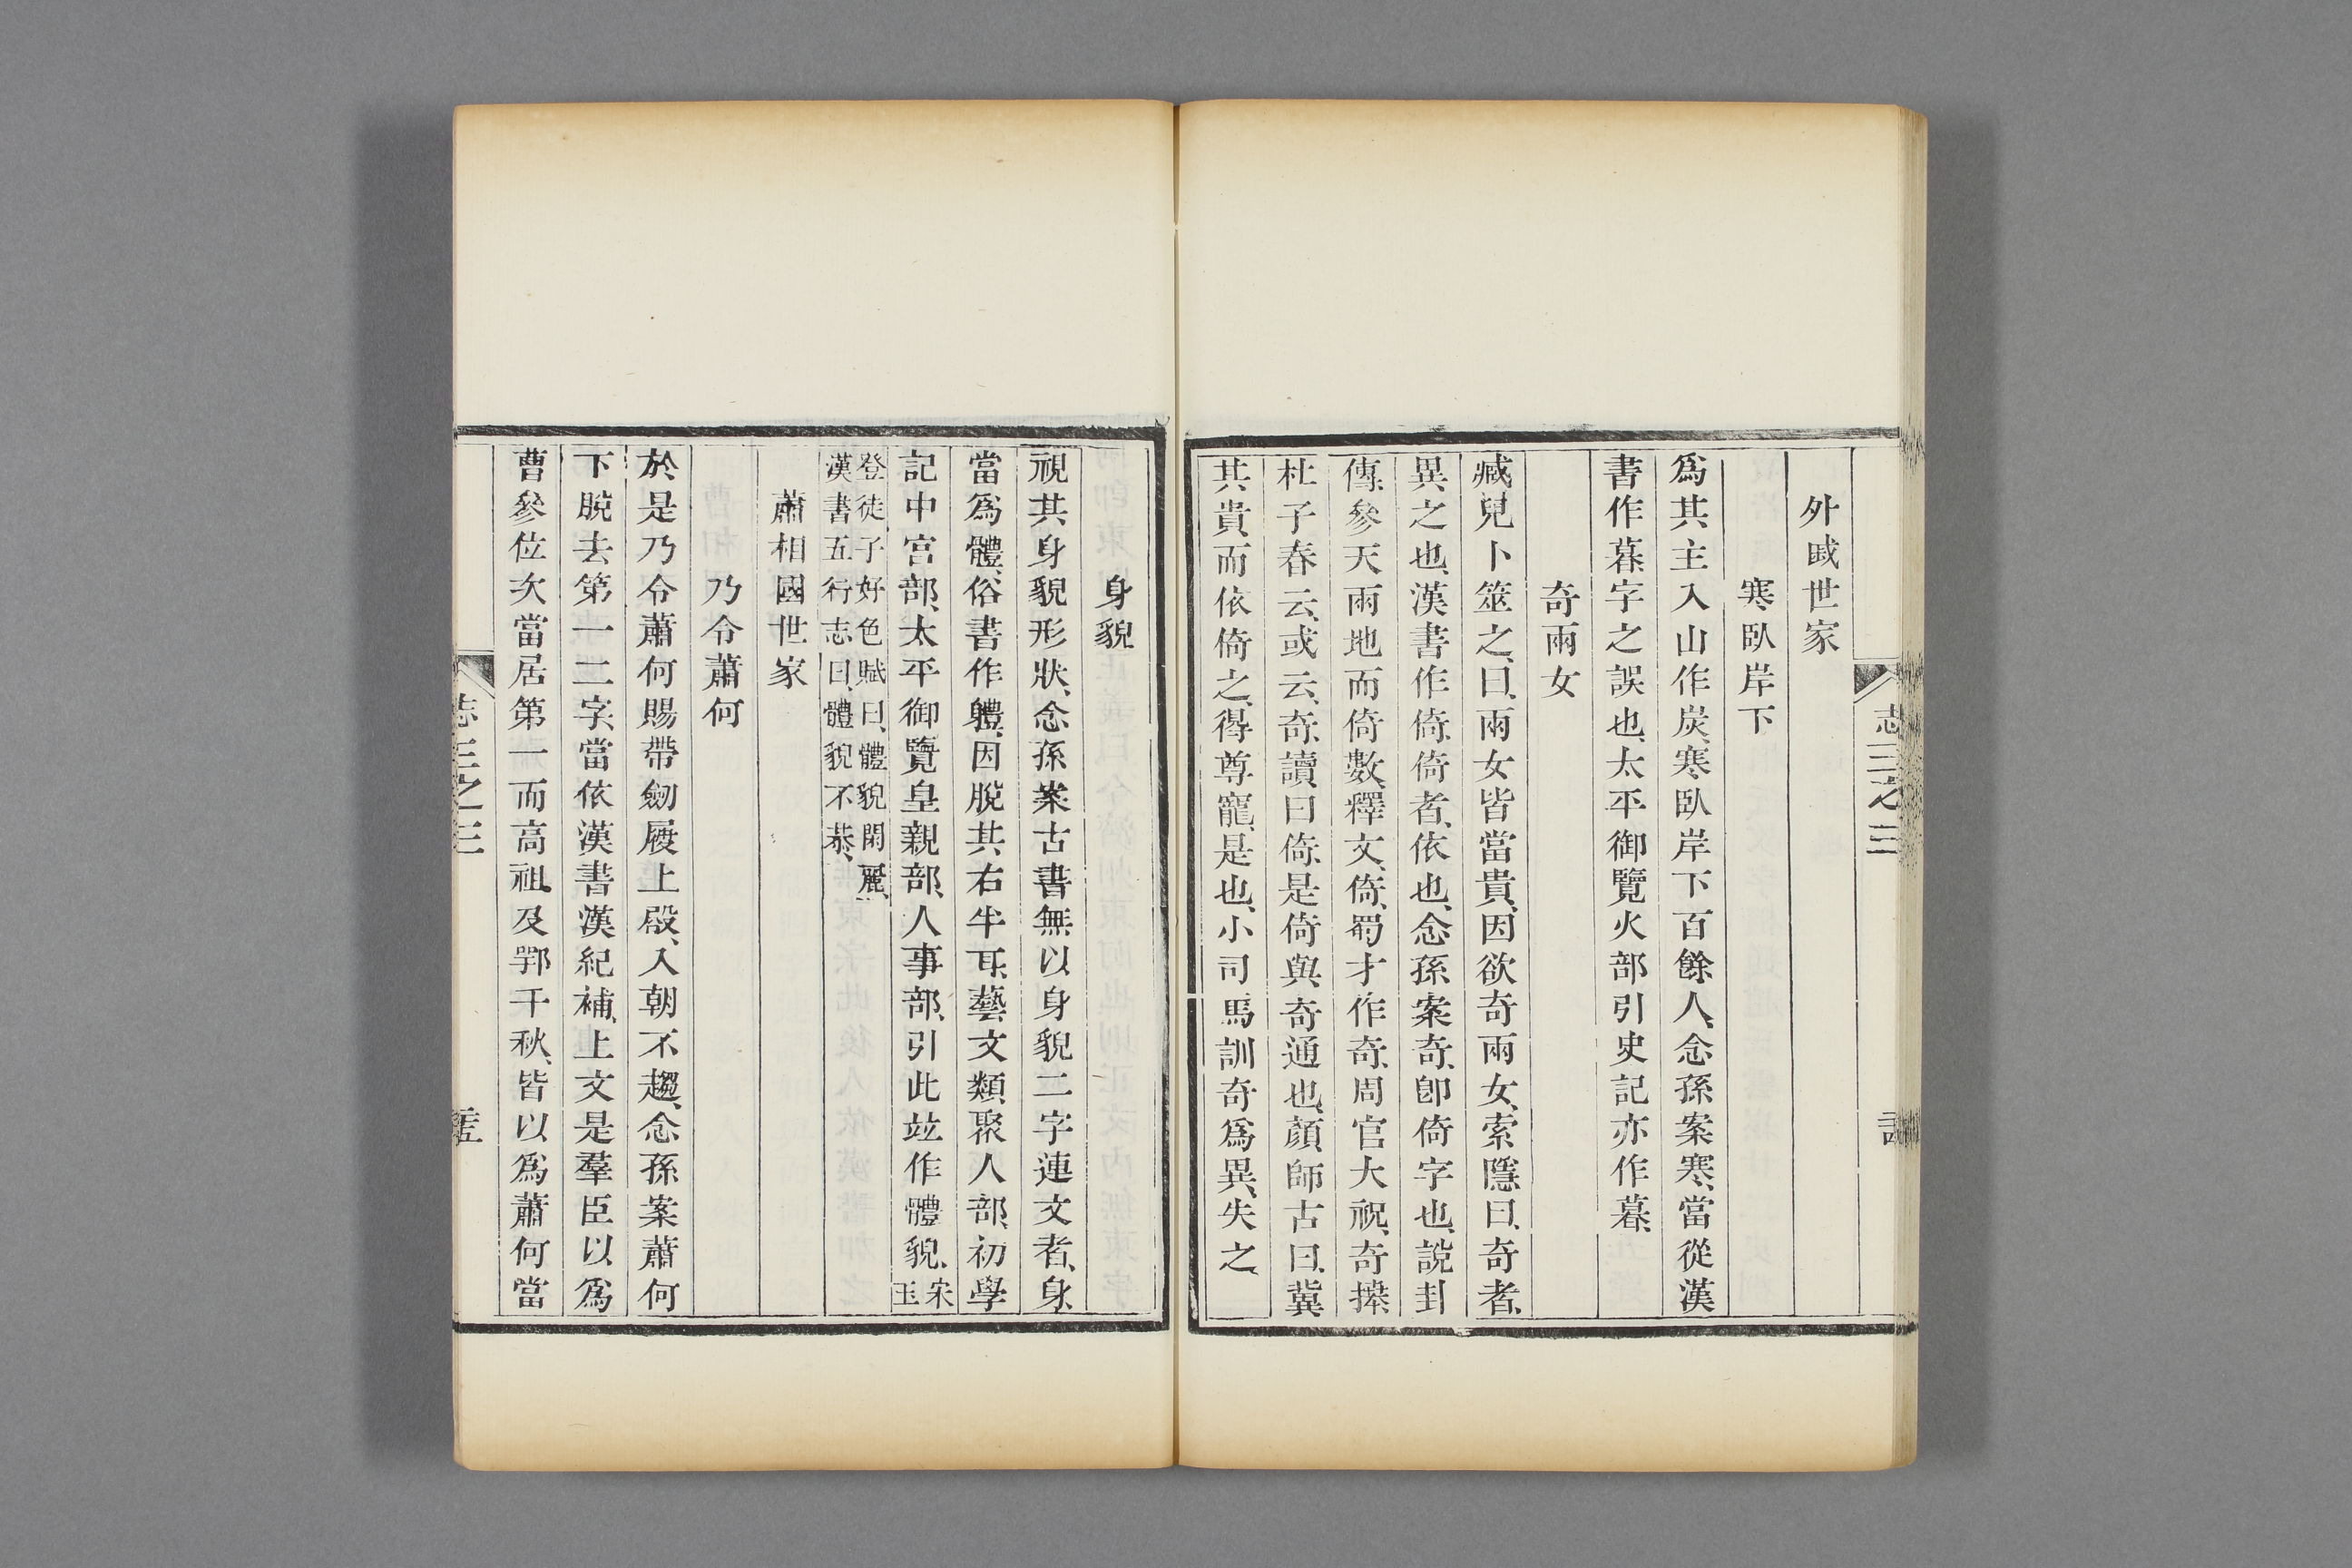 外戚世家
寒臥岸下
爲其主入山作炭、寒臥岸下百餘人、念孫案、寒、當從漢
書作暮、字之誤也、太平御覽火部引史記亦作暮、
奇兩女
臧兒卜筮之、曰、兩女皆當貴、因欲奇兩女、索隱曰、奇者、
異之也、漢書作倚、倚者、依也、念孫案、奇、卽倚字也、說卦
傳、參天兩地而倚數、釋文、倚、蜀才作奇、周官大祝、奇𢷎、
杜子春云、或云、奇、讀曰倚、是倚與奇通也、顏師古曰、冀
其貴而依倚之、得尊寵、是也、小司馬訓奇爲異、失之、
志三之三
身貌
視其身貌形狀、念孫案、古書無以身貌二字連文者、身、
當爲體、俗書作軆、因脫其右半耳、藝文類聚人部、初學
記中宮部、太平御覽皇親部、人事部、引此竝作體貌、宋玉
登徒子好色賦曰、體貌閑麗、
漢書五行志曰、體貌不恭、
蕭相國世家
乃令蕭何
於是乃令蕭何賜帶劒履上殿、入朝不趨、念孫案、蕭何
下脫去第一二字、當依漢書漢紀補、上文是羣臣以爲
曹參位次當居第一、而高祖及鄂千秋、皆以爲蕭何當
志三之三